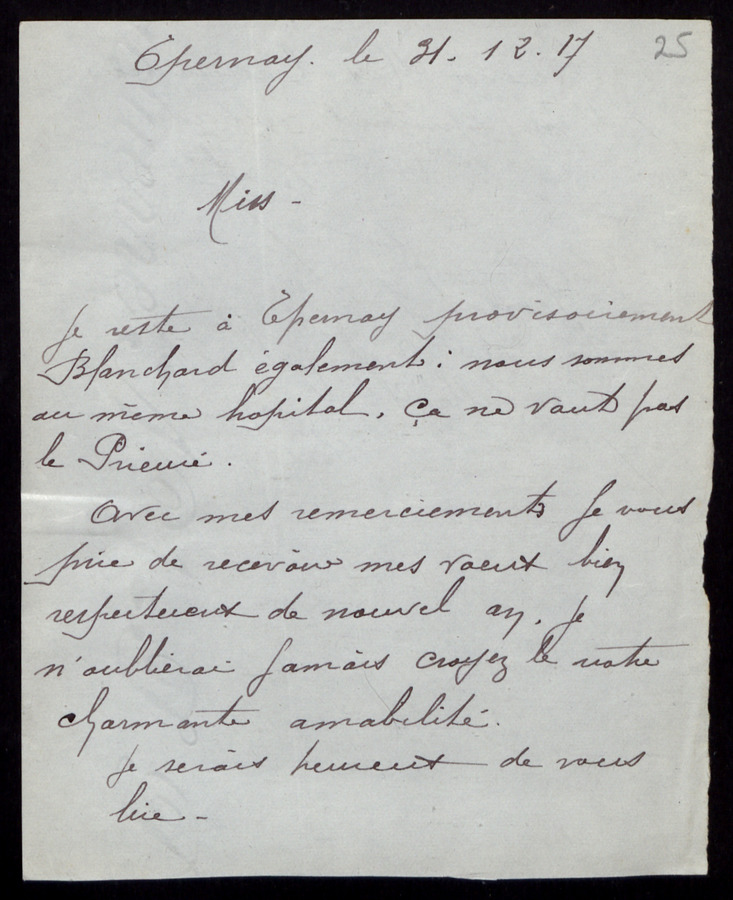 Epernay. le 31. 12. 17
25
Miss -
Je reste à Epernay provisoirement
Blanchard également : nous sommes
au même hopital. Ça ne vaut pas
le Prieuré.
Avec mes remerciements je vous
prie de recevoir mes vœux bien
respectueux de nouvel an. Je
n'oublierai jamais croyez le votre
charmante amabilité.
Je serais heureux de vous
lire -